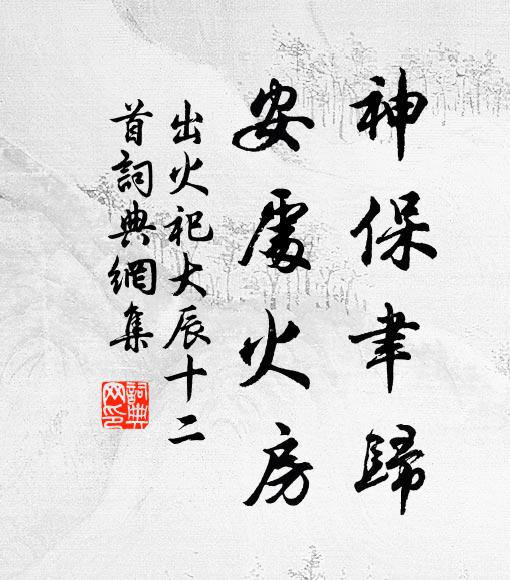 神保聿歸
安處火房
出火祀大辰十二
首詞典網集
詞典網印